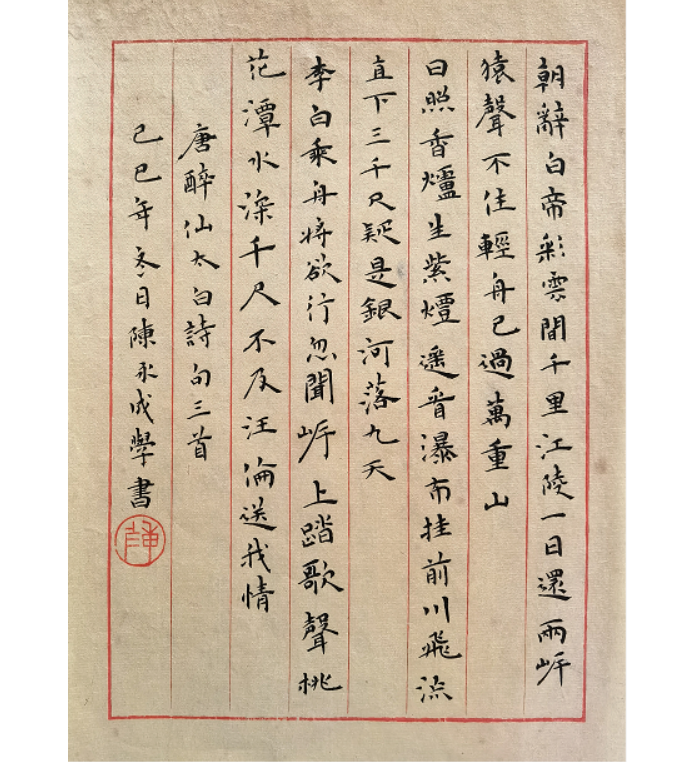 朝辭白帝彩雲間千里江陵一日還兩岸
猿聲不住輕舟已過萬重山
日照香爐生紫煙遥看瀑布挂前川飛流
直下三千尺疑是銀河落九天
李白乘舟將欲行忽聞岸上踏歌聲桃
花潭水深千尺不及汪倫送我情
唐醉仙太白詩句三首
己巳年冬日陳永成學書
陳